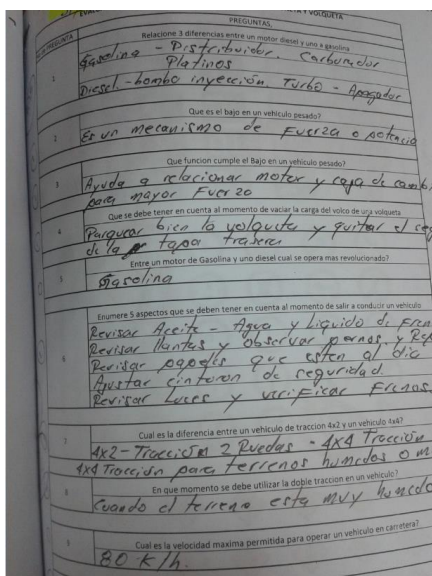 Y VOLQUETA
PREGUNTAS.
PREGUNTA
Relacione 3 diferencias entre un motor diesel y uno a gasolina
1
Gasolina - Distribuidor. Carburador
Platinos
Diesel - bomba inyección. Turbo - Apagador
Que es el bajo en un vehiculo pesado?
2
Es un mecanismo de Fuerza o potencia
Que funcion cumple el Bajo en un vehiculo pesado?
3
Ayuda a relacionar motor y caja de camb
para mayor Fuerza
Que se debe tener en cuenta al momento de vaciar la carga del volco de una volqueta
4
Parquear bien la volqueta y quitar el seg
de la tapa trasera
Entre un motor de Gasolina y uno diesel cual se opera mas revolucionado?
5
Gasolina
Enumere 5 aspectos que se deben tener en cuenta al momento de salir a conducir un vehiculo
6
Revisar Aceite - Agua y Liquido de Fren
Revisar llantas y observar pernos. y Rep
Revisar papeles que esten al dia
Ajustar cinturon de seguridad.
Revisar Luces y verificar Frenos.
Cual es la diferencia entre un vehiculo de traccion 4x2 y un vehiculo 4x4?
7
4x2 - Tracción 2 Ruedas - 4x4 Tracción
4x4 Tracción para terrenos humedos o m
En que momento se debe utilizar la doble traccion en un vehiculo?
8
Cuando el terreno esta muy humedo
Cual es la velocidad maxima permitida para operar un vehiculo en carretera?
9
80 K/h.